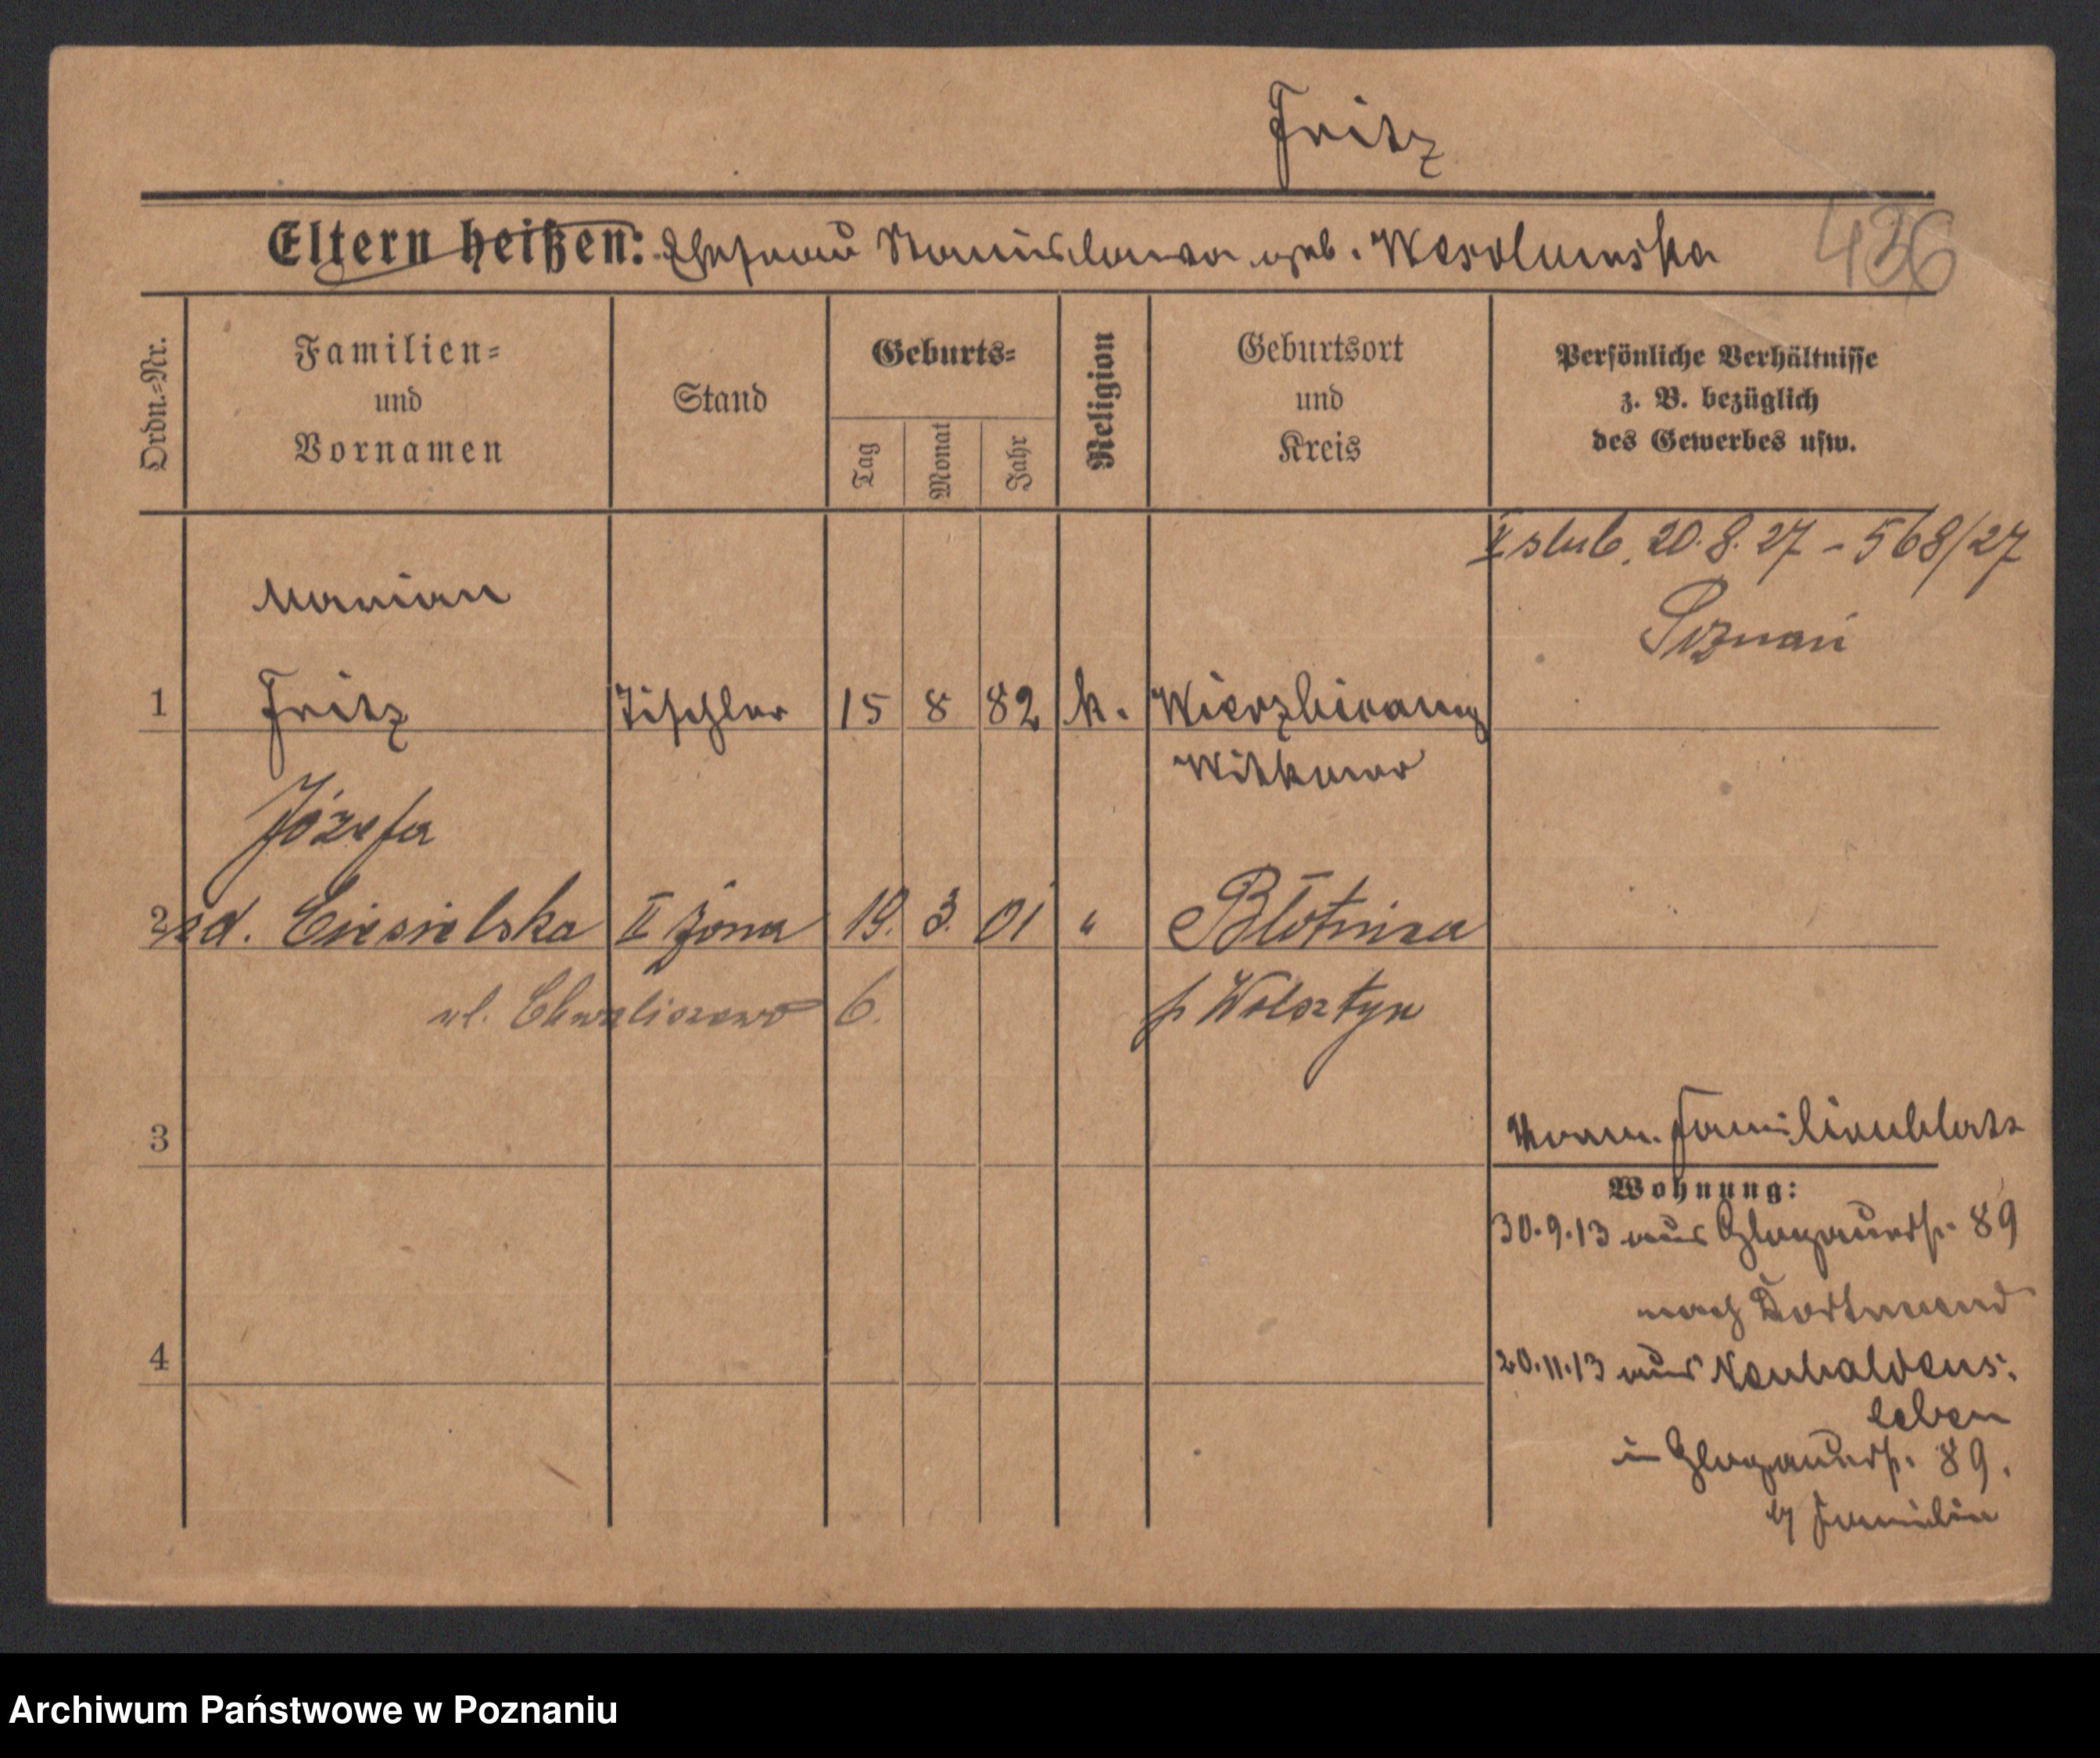 Fritz
Eltern heißen: Ehefrau Stanislawa geb. Wesolumska
436
Ordn.-Nr.
Familien-
und
Vornamen
Stand
Geburts-
Tag
Monat
Jahr
Religion
Geburtsort
und
Kreis
Persönliche Verhältnisse
z. B. bezüglich
des Gewerbes usw.
II ślub. 20.8.27 - 568/27
Poznań
Marian
1 Fritz Tischler 15 8 82 k.
Witkowo
Józefa
2 zd. Ciesielska II żona 19. 3. 01 " Błotnica
ul. Chwaliszewo 6. p Wolsztyn
3
Familienblatt
Wohnung:
30.9.13 aus Glogauerstr. 89
nach Dortmund
4
20.11.13 aus Neuhaldens-
leben
in Glogauerstr. 89.
Familie
Archiwum Państwowe w Poznaniu